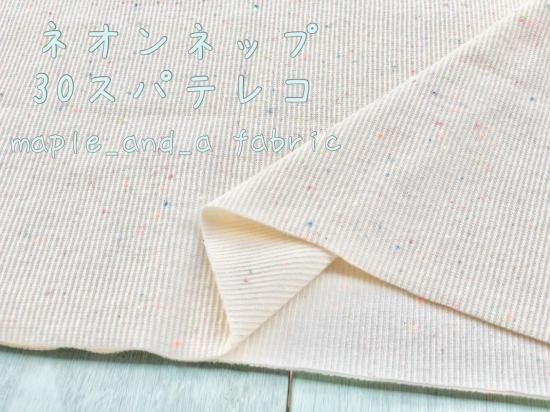 ネオンネップ
30スパテレコ
maple_and_a fabric